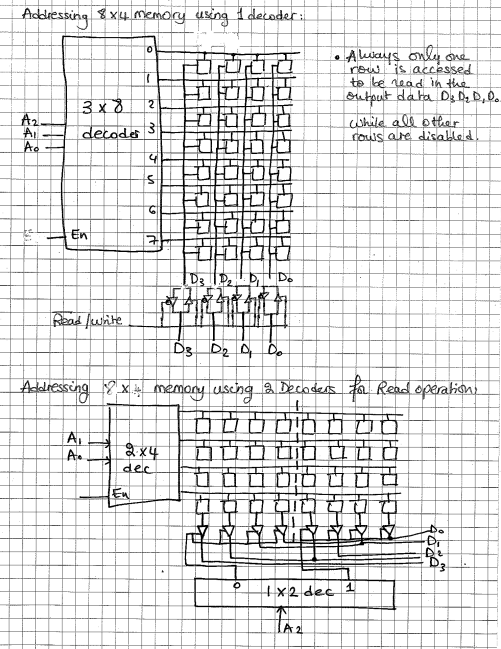 Addressing 8x4 memory using 1 decoder:
0
1
2
3
4
5
6
7
3 x 8
decoder
A2
A1
A0
E
En
• Always only one
row is accessed
to be read in the
output data D3 D2 D1 D0
while all other
rows are disabled.
D3 D2 D1 D0
Read/Write
D3 D2 D1 D0
Addressing 8 x 4 memory using 2 Decoders for Read operation:
A1
A0
2x4
dec
En
D0
D1
D2
D3
0 1x2 dec 1
A2